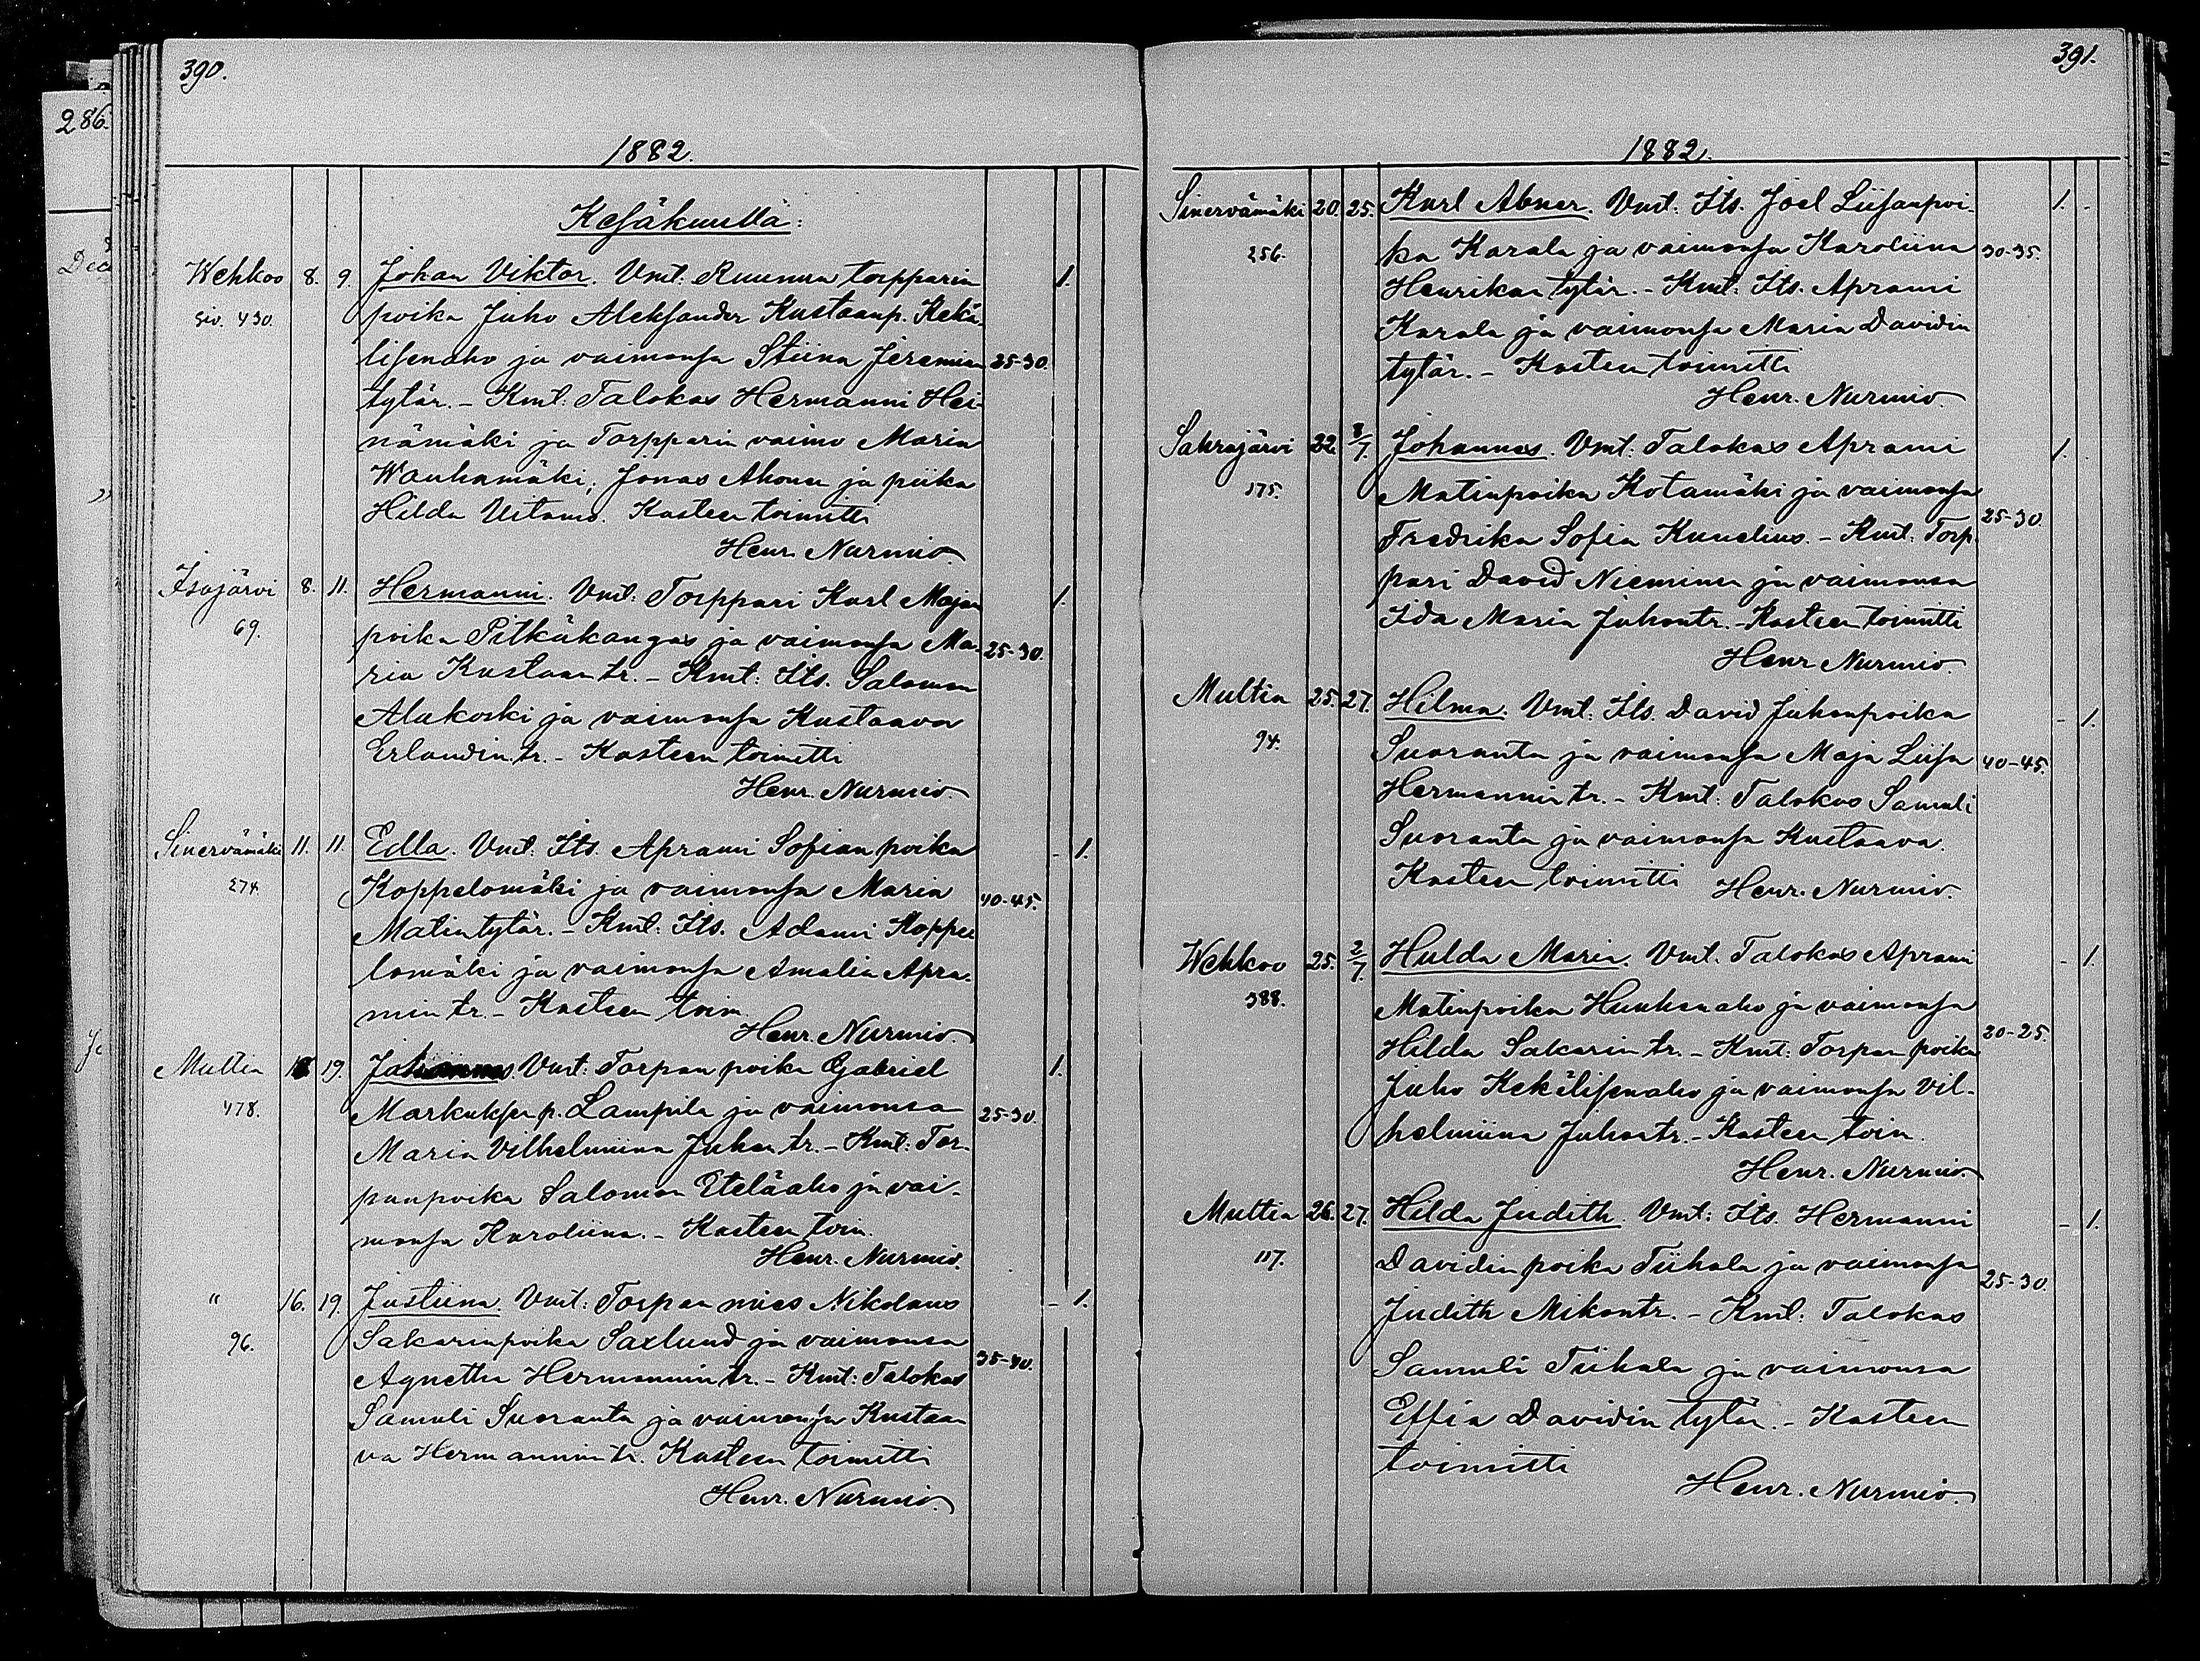 390.
286.
1882.
Kesäkuulla:
Wehkoo 8. 9. Johan Viktor. Vmt: Ruunun torpparin 1.
siv. 430. poika Juho Aleksander Kustaanp. Kekä-
lisenaho ja vaimonsa Stiina Jeremian 25-30.
tytär. - Kmt: Talokas Hermanni Hei-
nämäki ja Torpparin vaimo Maria
Wauhamäki; Jonas Ahonen ja piika
Hilda Uitamo. Kasteen toimitti
Henr. Nurmio.
Isojärvi 8. 11. Hermanni. Vmt: Torppari Karl Majan 1.
69. poika Pitkäkangas ja vaimonsa Ma- 25-30.
ria Kustaan tr. - Kmt: Its. Salomon
Alakoski ja vaimonsa Kustaava
Erlandin tr. - Kasteen toimitti
Henr. Nurmio.
Sinervämäki 11. 11. Edla. Vmt: Its. Aprami Sofian poika - 1.
274. Koppelomäki ja vaimonsa Maria 40-45.
Matintytär. - Kmt: Its. Adami Koppe
lomäki ja vaimonsa Amalia Apra-
min tr. - Kasteen toim.
Henr. Nurmio.
Multia 19. Johannes. Vmt: Torpan poika Gabriel 1.
478. Markuksen p. Lampila ja vaimonsa 25-30.
Maria Vilhelmiina Juhan tr. - Kmt: Tor-
panpoika Salomon Eteläaho ja vai-
monsa Karoliina. - Kasteen toim.
Henr. Nurmio.
" 16. 19. Justiina. Vmt: Torpan mies Nikolaus - 1.
96. Sakarinpoika Saxlund ja vaimonsa
Agnetha Hermannin tr. - Kmt: Talokas 35-40.
Samuli Suoranta ja vaimonsa Kustaa
va Hermannin tr. Kasteen toimitti
Henr. Nurmio.
391.
1882.
Sinervämäki 20. 25. Karl Abner. Vmt: Its. Joel Liisanpoi- 1. -
256. ka Karala ja vaimonsa Karoliina 30-35.
Henrikan tytär. - Kmt: Its. Aprami
Karala ja vaimonsa Maria Davidin
tytär. - Kasteen toimitti
Henr. Nurmio.
Sahrajärvi 22. 8/7. Johannes. Vmt: Talokas Aprami 1.
175. Matinpoika Kotamäki ja vaimonsa
Fredrika Sofia Kunelius. - Kmt: Torp- 25-30.
pari David Nieminen ja vaimonsa
Ida Maria Juhontr. - Kasteen toimitti
Henr Nurmio.
Multia 25. 27. Hilma. Vmt: Its. David Juhonpoika - 1.
94. Suoranta ja vaimonsa Maja Liisa 40-45.
Hermannin tr. - Kmt: Talokas Samuli
Suoranta ja vaimonsa Kustaava.
Kasteen toimitti Henr. Nurmio.
Wehkoo 25. 2/7. Hulda Maria. Vmt. Talokas Aprami - 1.
388. Matinpoika Huuhanaho ja vaimonsa 20-25.
Hilda Sakarin tr. - Kmt: Torpan poika
Juho Kekälisenaho ja vaimonsa Vil-
helmiina Juhontr. - Kasteen toim.
Henr. Nurmio.
Multia 26. 27. Hilda Judith. Vmt: Its. Hermanni - 1.
117. Davidin poika Tiihala ja vaimonsa 25-30.
Judith Mikontr. - Kmt: Talokas
Samuli Tiihala ja vaimonsa
Effia Davidin tytär. - Kasteen
toimitti
Henr. Nurmio.